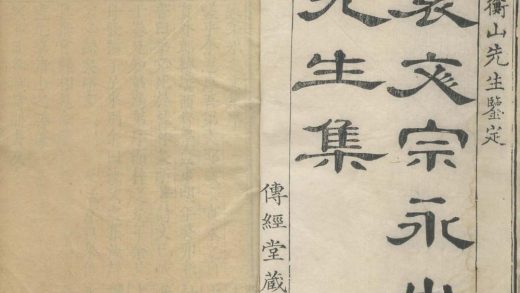 衡山先生鑒定
文宗永
先生集
傳經堂藏